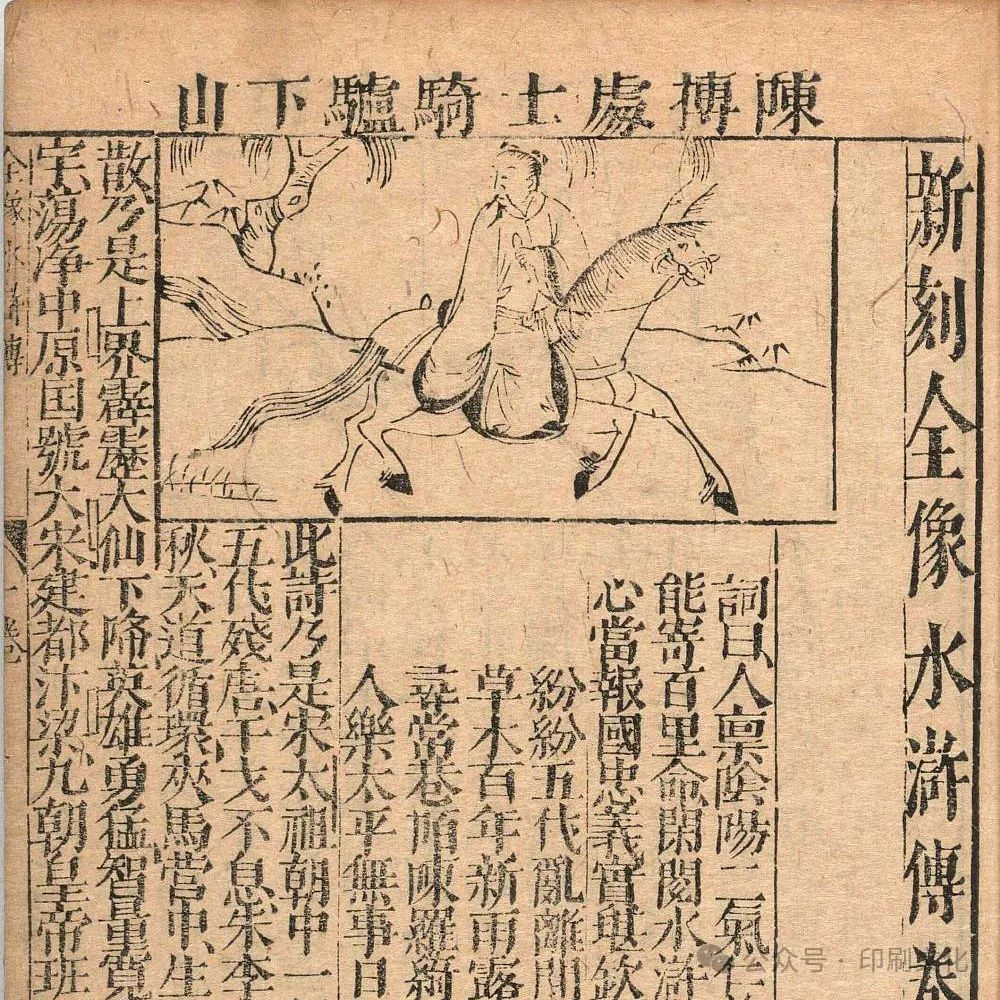 陳摶處士騎驢下山
新刻全像水滸傳卷
詞曰人稟陰陽二氣仁
能寄百里命閑閱水滸
心當報國忠義實堪欽
紛紛五代亂離間
草木百年新雨露
尋常巷陌陳羅綺
人樂太平無事日
此詩乃是宋太祖朝中一
五代殘唐干戈不息朱李
秋天道循環夾馬營中生
散乃是上界霹靂大仙下降英雄勇猛智量寬
宇蕩净中原囯號大宋建都汴梁九朝皇帝班
全像水滸傳
一卷
公众号 · 印刷文化